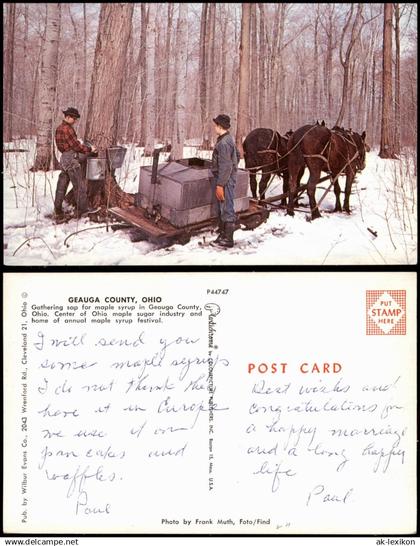 P44747
GEAUGA COUNTY, OHIO
Gathering sap for maple syrup in Geauga County,
Ohio. Center of Ohio maple sugar industry and
home of annual maple syrup festival.
Pub. by Wilbur Evans Co., 2043 Wrenford Rd., Cleveland 21, Ohio ©
I will send you
some maple syrups
I do not think they
have it in Europe
we use it on
pancakes and
waffles.
Paul
PUT
STAMP
HERE
POST CARD
Best wishes and
congratulations for
a happy marriage
and a long happy
life
Paul
Photo by Frank Muth, Foto/Find
www.ak-lexikon.de
© ak-lexikon.de